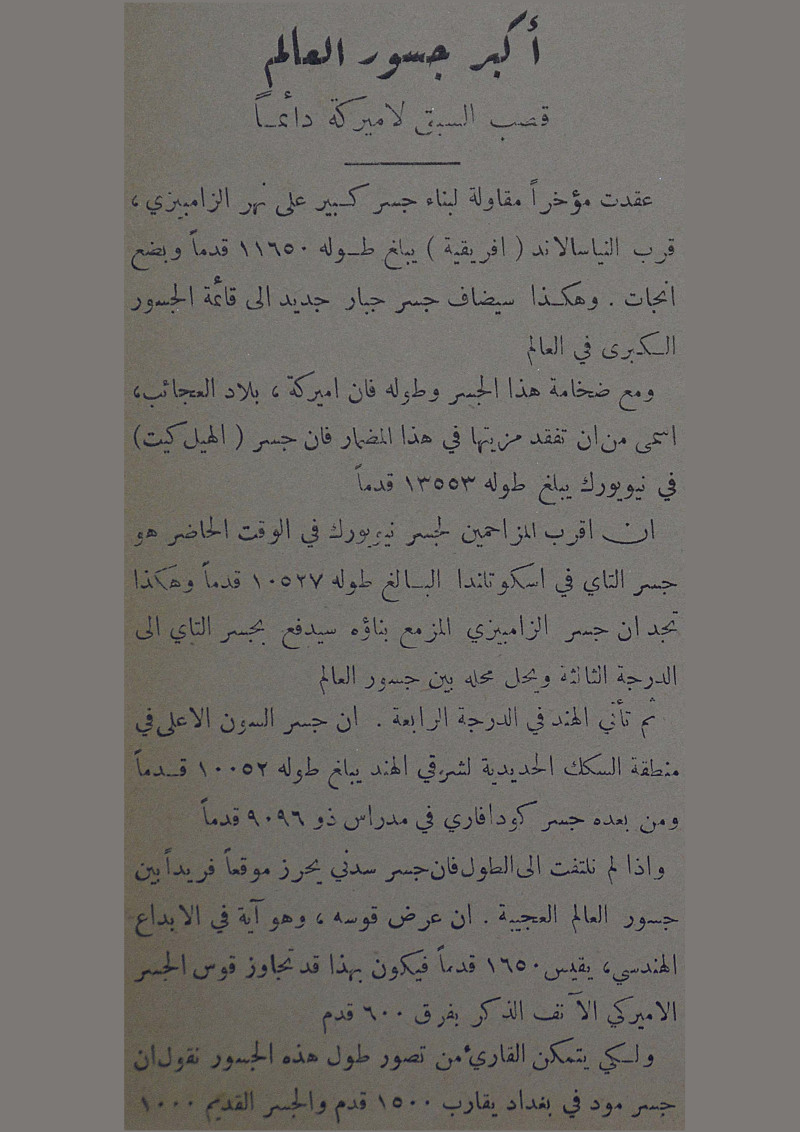 أكبر جسور العالم
قصب السبق لاميركة دائماً
عقدت مؤخراً مقاولة لبناء جسر كبير على نهر الزامبيزي ،
قرب النياسالاند ( افريقية ) يبلغ طوله ١١٦٥٠ قدماً وبضع
انجات . وهكذا سيضاف جسر جبار جديد الى قائمة الجسور
الكبرى في العالم
ومع ضخامة هذا الجسر وطوله فان اميركة ، بلاد العجائب ،
اسمى من ان تفقد مزيتها في هذا المضمار فان جسر ( الهيل كيت )
في نيويورك يبلغ طوله ١٣٥٥٣ قدماً
ان اقرب المزاحمين لجسر نيويورك في الوقت الحاضر هو
جسر التاي في اسكوتاندا البالغ طوله ١٠٥٢٧ قدماً وهكذا
تجد ان جسر الزامبيزي المزمع بناؤه سيدفع بجسر التاي الى
الدرجة الثالثة ويحل محله بين جسور العالم
ثم تأتي الهند في الدرجة الرابعة . ان جسر السون الاعلى في
منطقة السكك الحديدية لشرقي الهند يبلغ طوله ١٠٠٥٢ قدماً
ومن بعده جسر كودافاري في مدراس ذو ٩٠٩٦ قدماً
واذا لم نلتفت الى الطول فان جسر سدني يحرز موقعاً فريداً بين
جسور العالم العجيبة . ان عرض قوسه ، وهو آية في الابداع
الهندسي ، يقيس ١٦٥٠ قدماً فيكون بهذا قد تجاوز قوس الجسر
الاميركي الآنف الذكر بفرق ٦٠٠ قدم
ولكي يتمكن القارئ من تصور طول هذه الجسور نقول ان
جسر مود في بغداد يقارب ١٥٠٠ قدم والجسر القديم ١٠٠٠